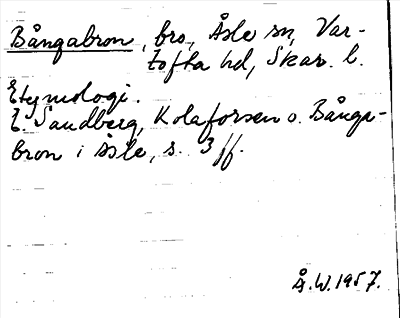 Bångabron, bro, Åsle sn, Var-
tofta hd, Skar. l.
Etymologi.
E. Sandberg, Kolaforsen o. Bånga-
bron i Åsle, s. 3 ff.
Å.W. 1957.